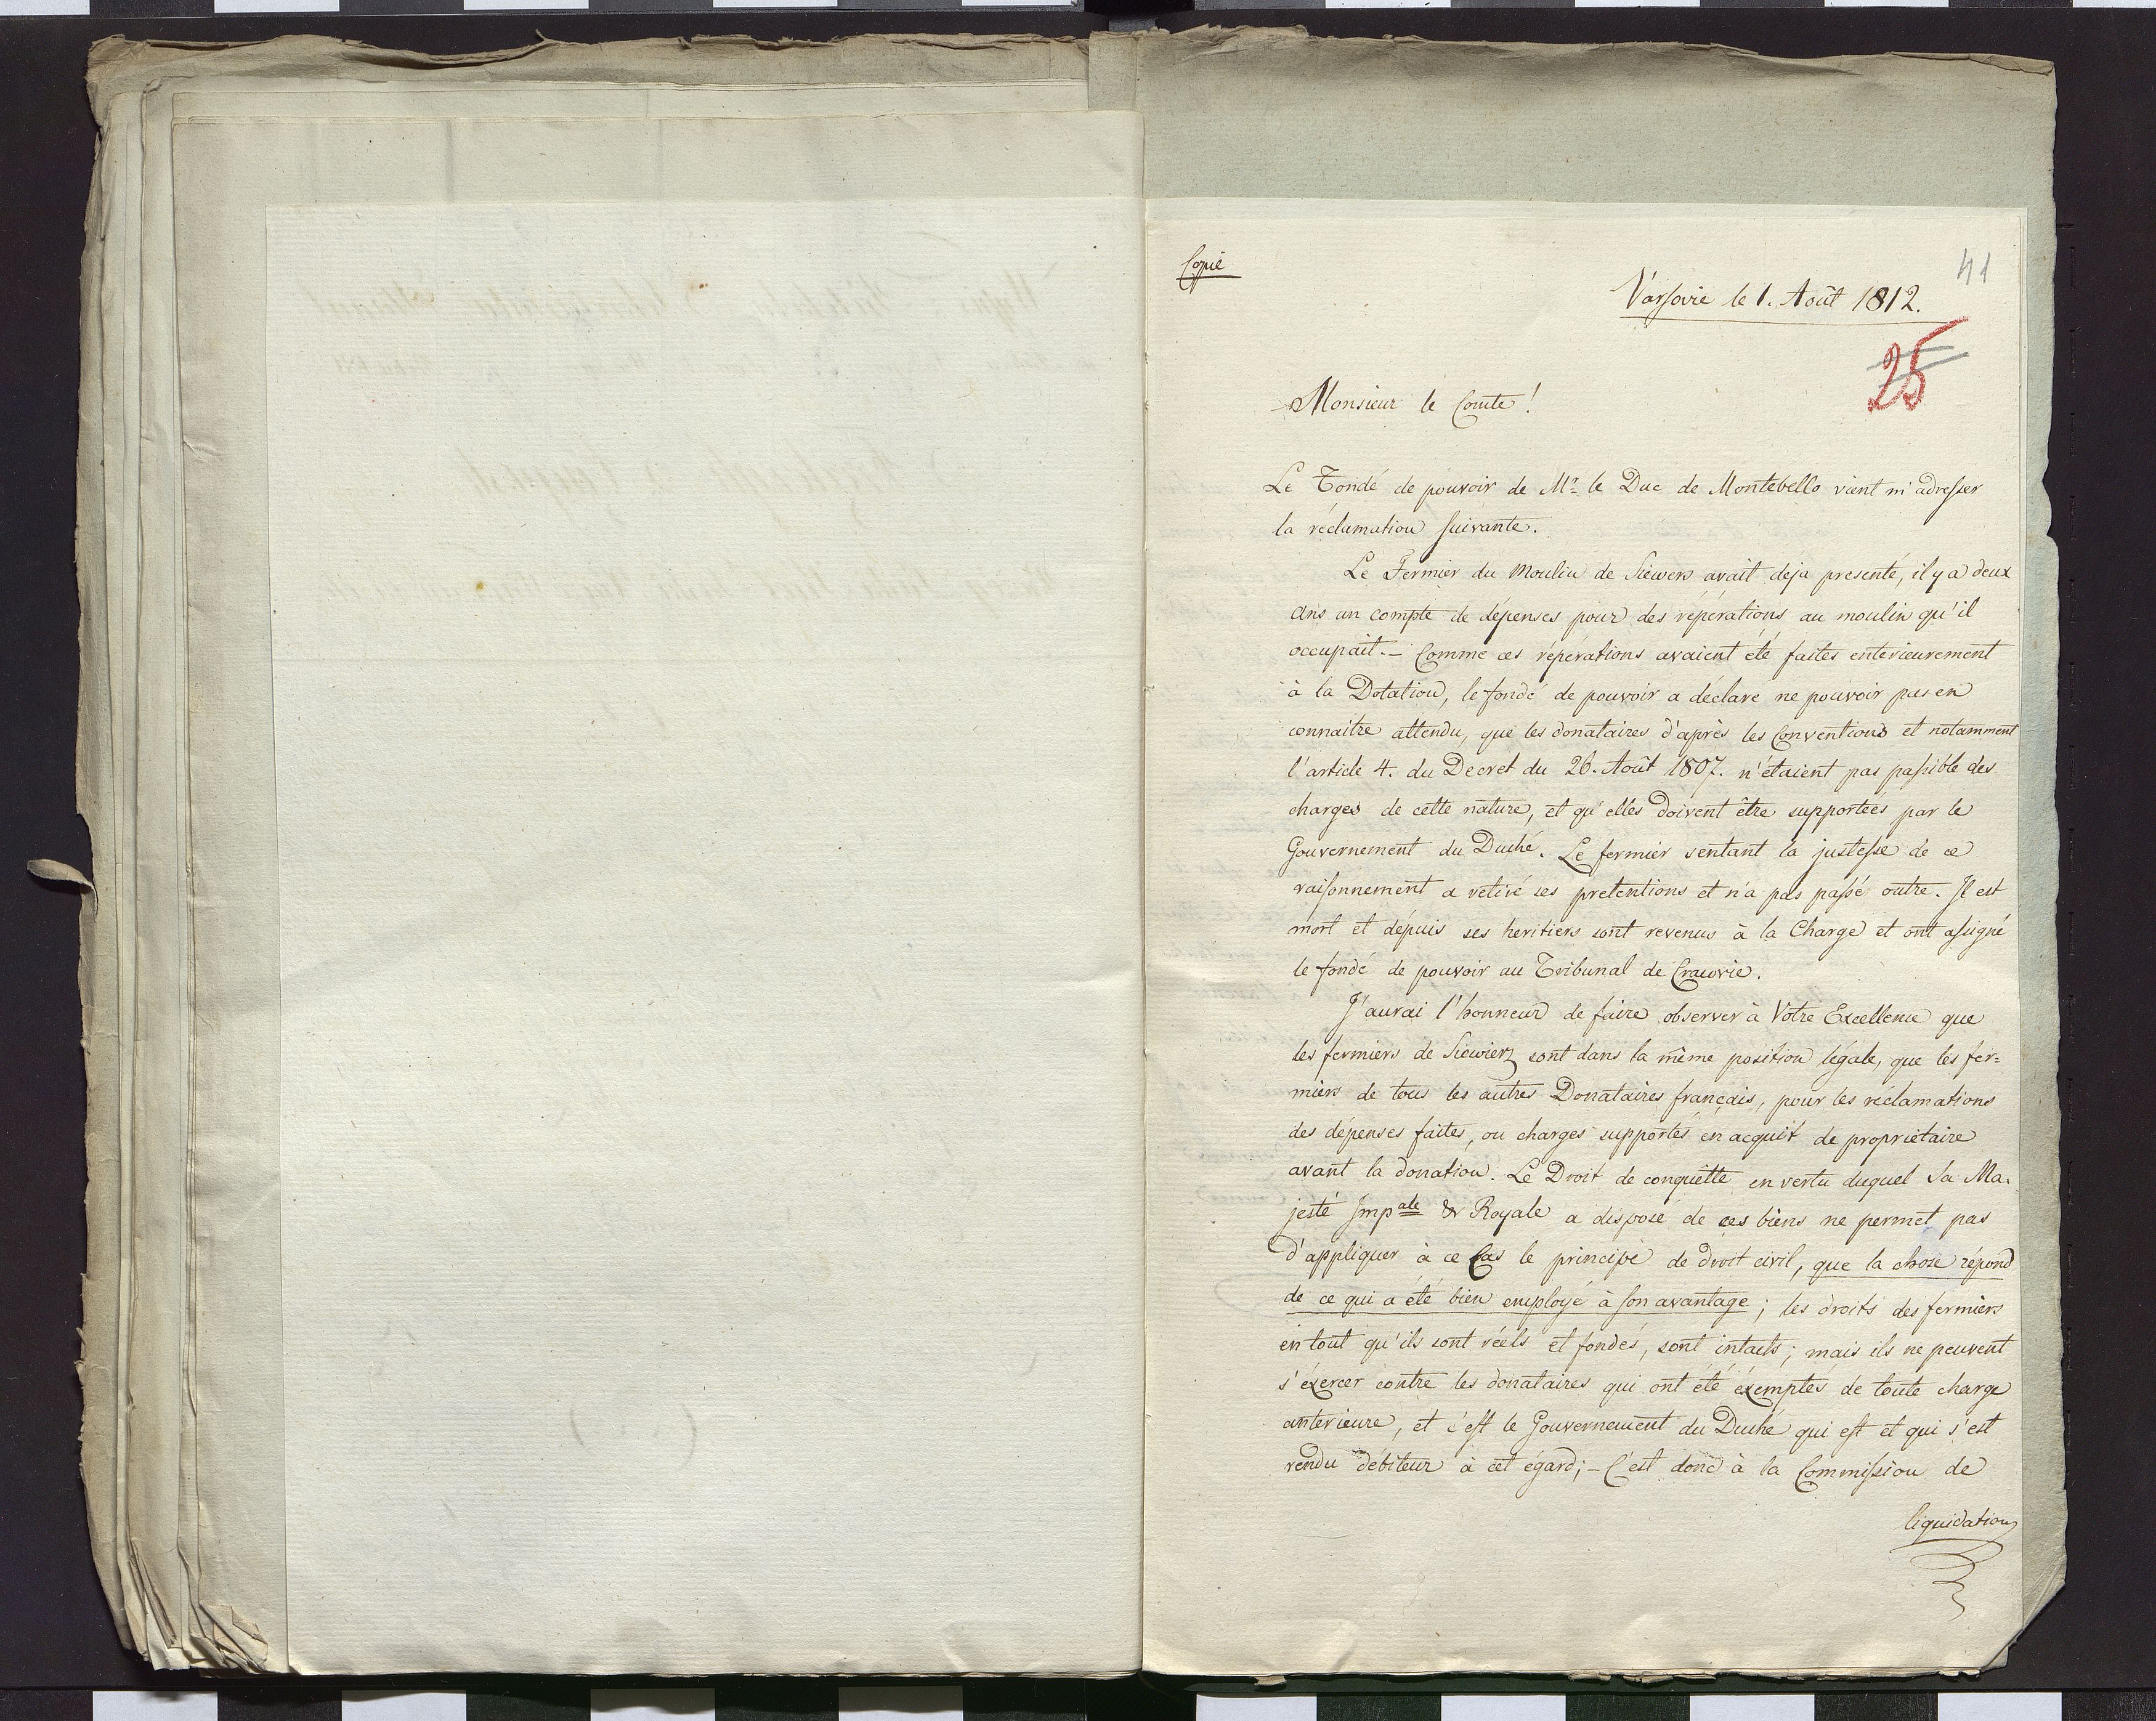 Copie
41
Varsovie le 1. Août 1812.
25
Monsieur le Comte!
Le Fondé de pouvoir de Mr. le Duc de Montebello vient m'adresser
la réclamation suivante.
Le Fermier du Moulin de Siewers avait deja presenté, il y a deux
ans un compte de dépenses pour des répérations au moulin qu'il
occupait. - Comme ces répérations avaient été faites enterieurement
à la Dotation, le fondé de pouvoir a déclare ne pouvoir pas en
connaitre attendu, que les donataires d'après les Conventions et notamment
l'article 4. du Decret du 26. Août 1807. n'étaient pas passible des
charges de cette nature, et qu'elles doivent être supportées par le
Gouvernement du Duché. Le fermier sentant la justesse de ce
raisonnement a retiré ses pretentions et n'a pas passé outre. Il est
mort et dépuis ses heritiers sont revenus à la Charge et ont assigné
le fondé de pouvoir au Tribunal de Cracovie.
J'aurai l'honneur de faire observer à Votre Excellence que
les fermiers de Siewierz sont dans la même position légale, que les fer=
miers de tous les autres Donataires français, pour les réclamations
des dépenses faites, ou charges supportés en acquit de propriétaire
avant la donation. Le Droit de conquêtte en vertu duquel Sa Ma-
jesté Impale & Royale a disposé de ces biens ne permet pas
d'appliquer à ce Cas le principe de droit civil, que la chose répond
de ce qui a été bien employé à son avantage; les droits des fermiers
en tout qu'ils sont réels et fondés, sont intacts; mais ils ne peuvent
s'éxercer contre les donataires qui ont été éxemptés de toute charge
anterieure, et c'est le Gouvernement du Duché qui est et qui s'est
rendu débiteur à cet égard; - C'est donc à la Commission de
liquidation